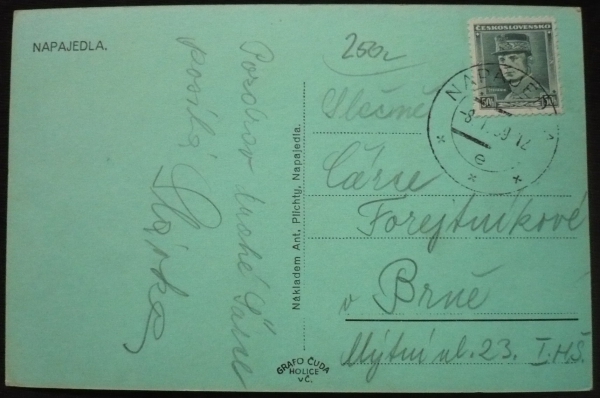 NAPAJEDLA.
Pozdrav drahé Cárce
posílá
Slávka
Nákladem Ant. Plichty, Napajedla.
GRAFO ČUDA
HOLICE
v Č.
ČESKOSLOVENSKO
NAPAJEDLA
e
Slečně
Cárce
Forejtníkové
v Brně
Mýtní ul. 23. I.